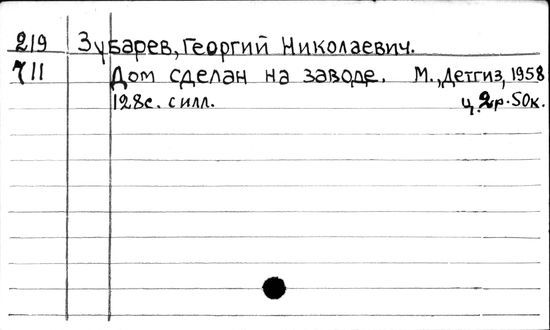 219 Зубарев, Георгий Николаевич.
711 Дом сделан на заводе. М., Детгиз, 1958
128с. силл. ц. 2р. 50к.